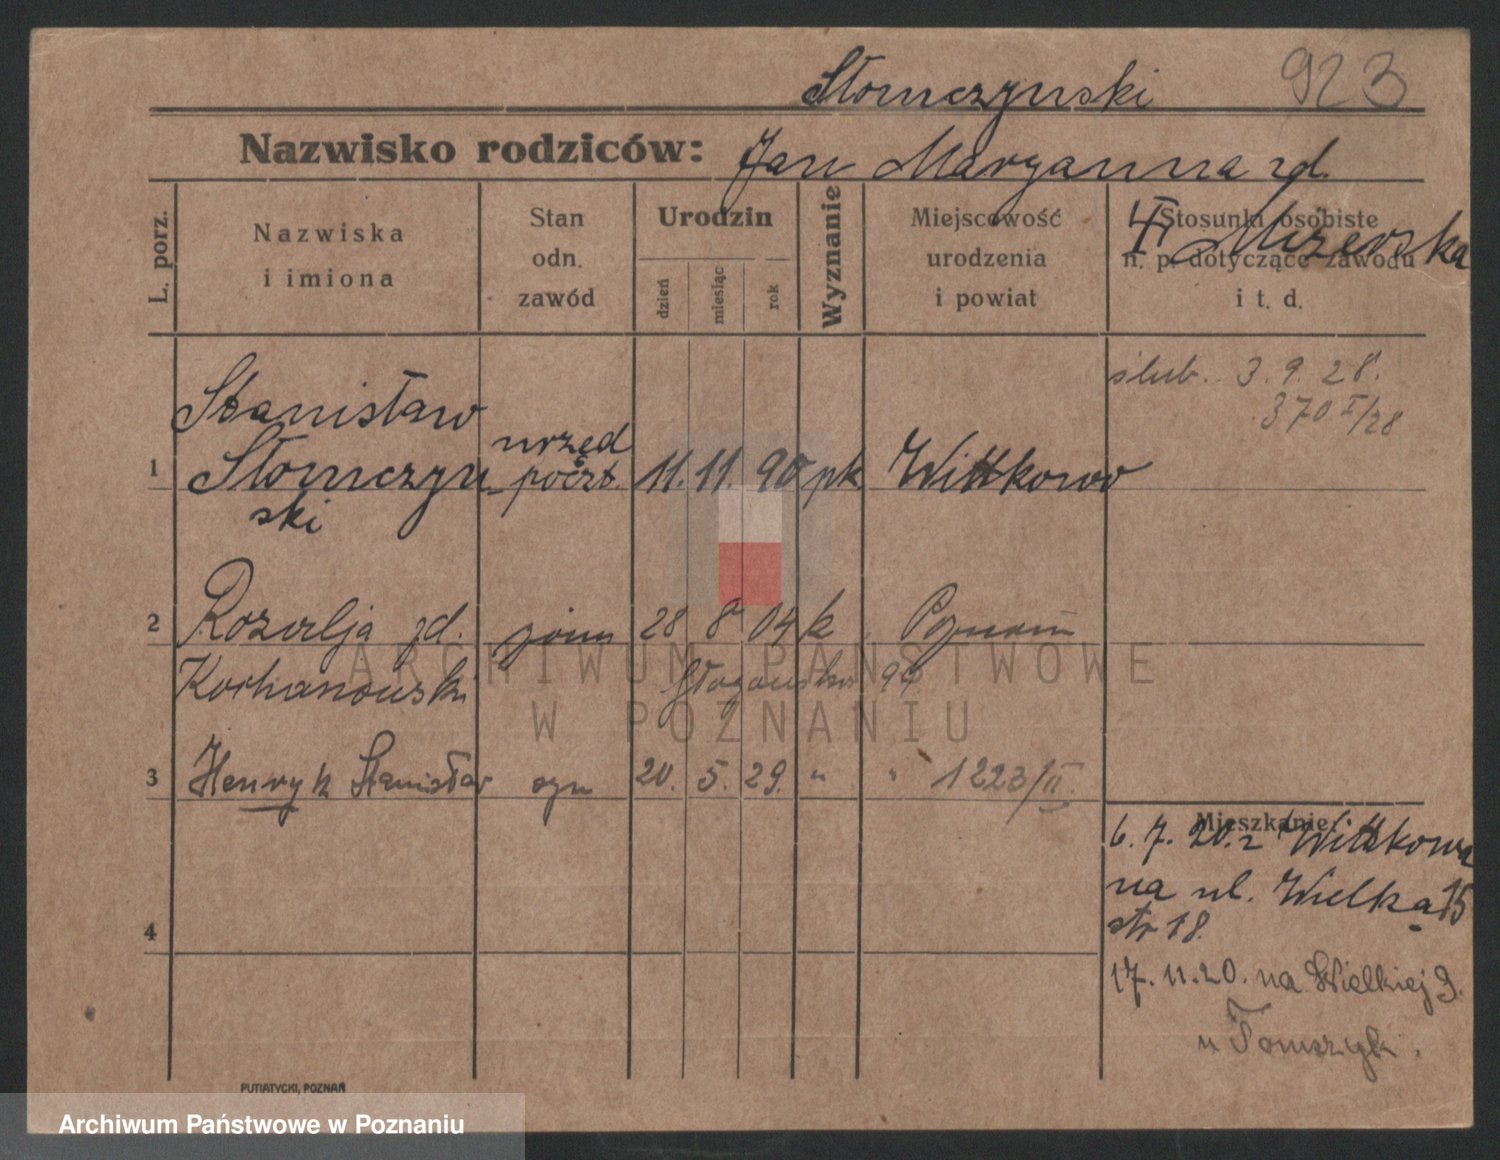 Słomczynski 923
Nazwisko rodziców: Jan Maryanna zd.
L. porz.
Nazwiska
i imiona
Stan
odn.
zawód
Urodzin
dzień
miesiąc
rok
Wyznanie
Miejscowość
urodzenia
i powiat
Stosunki osobiste
n. p. dotyczące zawodu
i t. d.
ślub. 3. 9. 28.
370 I/28
Stanisław
1 Słomczyn urzęd poczt. 11. 11. 90 pk Wittkowo
ski
2 Rozalja zd. żona 28 8 04 k Poznań
Kochanowski 99
3 Henryk Stanisław syn 20. 5. 29. " " 1223/II.
4
Mieszkanie:
6. 7. 20. z Wittkowa
na ul. Wielka 15
str 18.
17. 11. 20. na Wielkiej 9.
u
PUTIATYCKI, POZNAŃ
ARCHIWUM PAŃSTWOWE
W POZNANIU
Archiwum Państwowe w Poznaniu